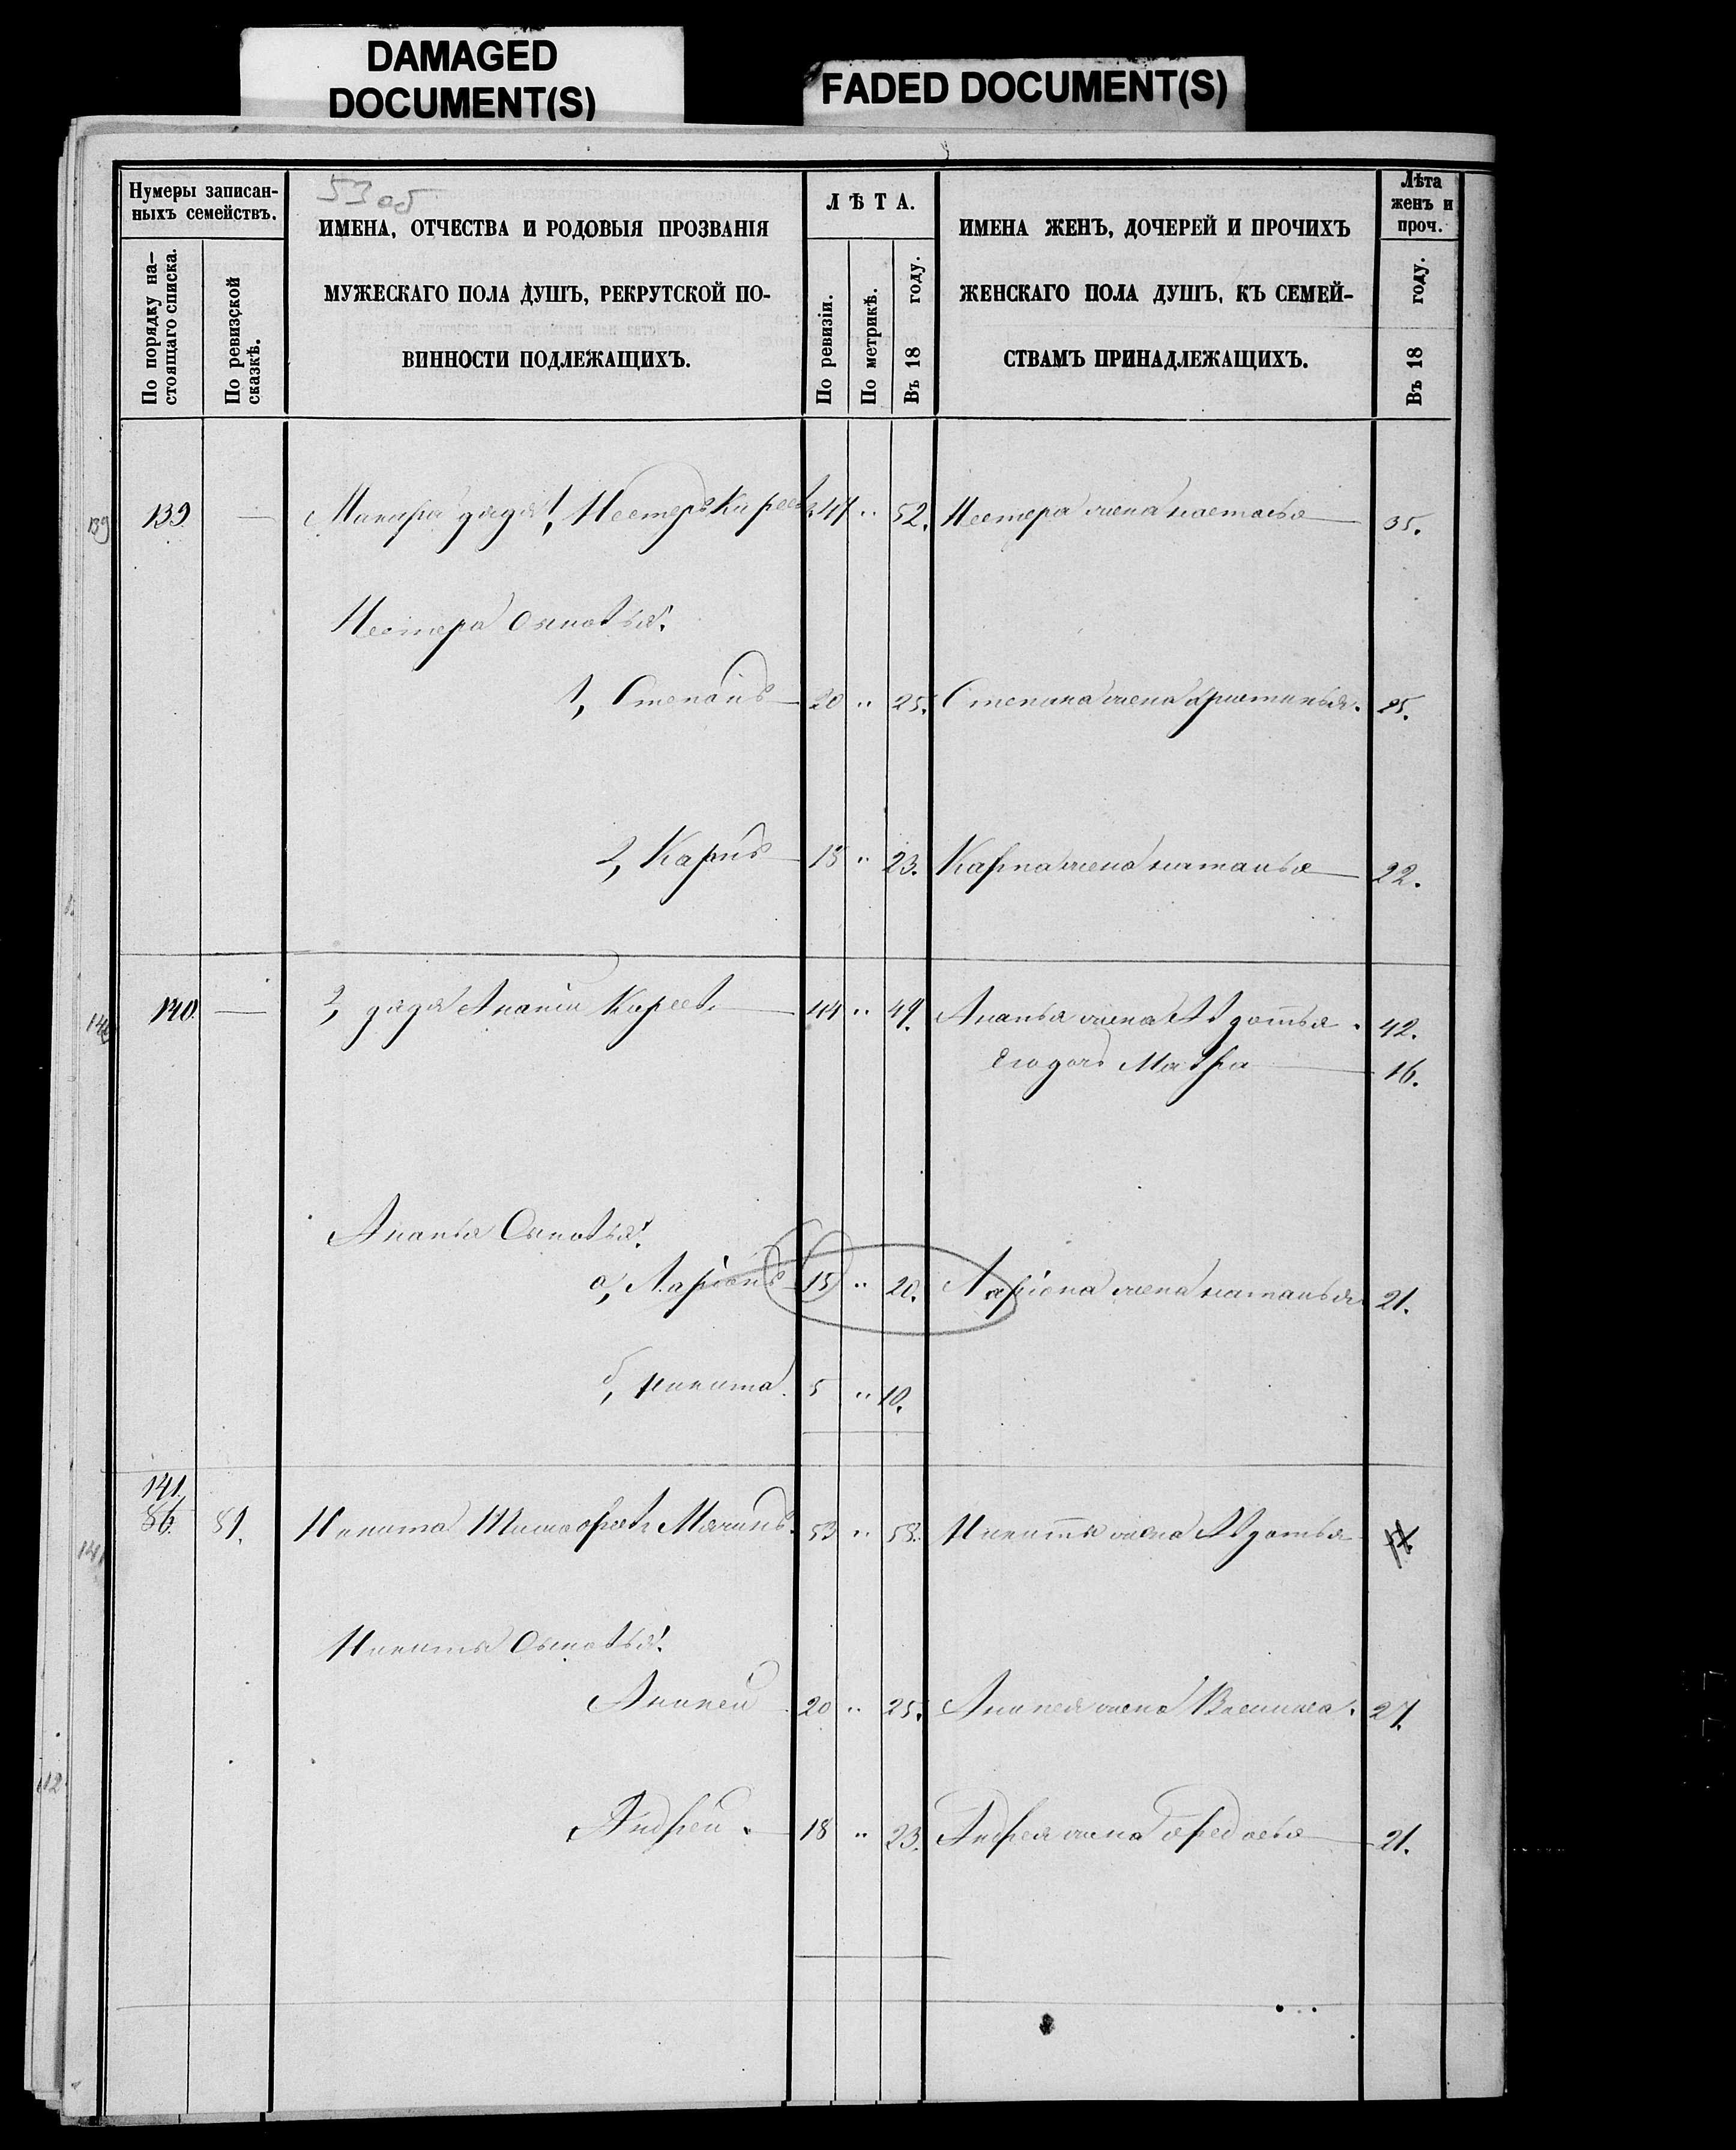 DAMAGED
DOCUMENT(S)
FADED DOCUMENT(S)
53 об
Нумеры записан-
ныхъ семействъ.
По порядку на-
стоящаго списка.
По ревизской
сказкѣ.
ИМЕНА, ОТЧЕСТВА И РОДОВЫЯ ПРОЗВАНІЯ
МУЖЕСКАГО ПОЛА ДУШЪ, РЕКРУТСКОЙ ПО-
ВИННОСТИ ПОДЛЕЖАЩИХЪ.
ЛѢТА.
По ревизіи.
По метрикѣ.
Въ 18 году.
ИМЕНА ЖЕНЪ, ДОЧЕРЕЙ И ПРОЧИХЪ
ЖЕНСКАГО ПОЛА ДУШЪ, КЪ СЕМЕЙ-
СТВАМЪ ПРИНАДЛЕЖАЩИХЪ.
Лѣта
женъ и
проч.
Въ 18 году.
139 139 — Макара дядя 1, Нестеръ Киреевъ 47 " 52. Нестера жена настасья — 35.
Нестера Сыновья:
1, Степанъ — 20 " 25. Степана жена христинья. 25.
2, Карпъ — 18 " 23. Карпа жена наталья — 22.
140 140. — 2, дядя Ананiи Киреев. — 44 " 49. Ананья жена Авдотья. 42.
Его дочь Мавра — 16.
Ананья Сыновья:
а, Ларiонъ 15 " 20.Ларiона жена наталья 21.
б, никита. 5 " 10.
141.
141 86. 81. Никита Тимофеевъ 53 " 58. Никиты жена Авдотья
Никиты Сыновья:
Ананей 20 " 25. Ананея жена Василиса. 27.
Андрей. — 18 " 23. Андрея жена Федосья — 21.